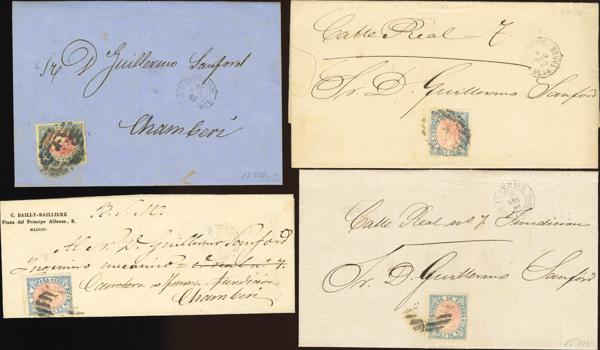 Sr. D. Guillermo Sanford
Chamberí
Calle Real - 7
Sr. D. Guillermo Sanford
C. BAILLY-BAILLIERE
Plaza del Principe Alfonso, 8.
MADRID.
B. S. M.
A. D. Guillermo Sanford
Ingeniero mecanico Real nº 7.
Carretera de Francia fundicion
Chamberí
Calle Real nº 7 Fundicion
Sr. D. Guillermo Sanford